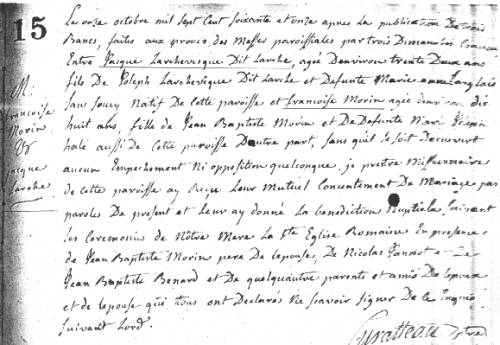 15
M.
francoise
Morin
&
jacque
Larche
Le onze octobre mil sept Cent soixante et onze apres la publication De trois
Bancs, faites aux prones des Messes paroissiales par trois Dimanches Consecu
Entre Jacque Larchevesque Dit Larche, agé Denviron trente Deux ans
fils De Joseph Larcheveque Dit Larché et Defunte Marie anne Langlais
sans soucy Natif De Cette paroisse et francoise Morin agée denviron dix
huit ans, fille de Jean Baptiste Morin et De Defunte Mari Joseph
halé aussi de Cette paroisse Dautre part, sans qu'il se soit Decouvert
aucun Empechement Ni opposition quelconque. je prêtre Missionnaire
de cette paroisse ay Reçu Leur Mutuel Consentement De Mariage par
paroles De present et Leur ay donné La benediction Nuptiale, suivant
Les Ceremonies de Nôtre Mere La Ste Eglise Romaine En presence
de Jean Baptiste Morin pere De lepouse, De Nicolas et De
Jean Baptiste Benard et De quelquautre parents et amis De lepoux
et de lepouse qui tous ont Declarés Ne sçavoir signer De Ce
suivant Lord.
Curatteau ptre